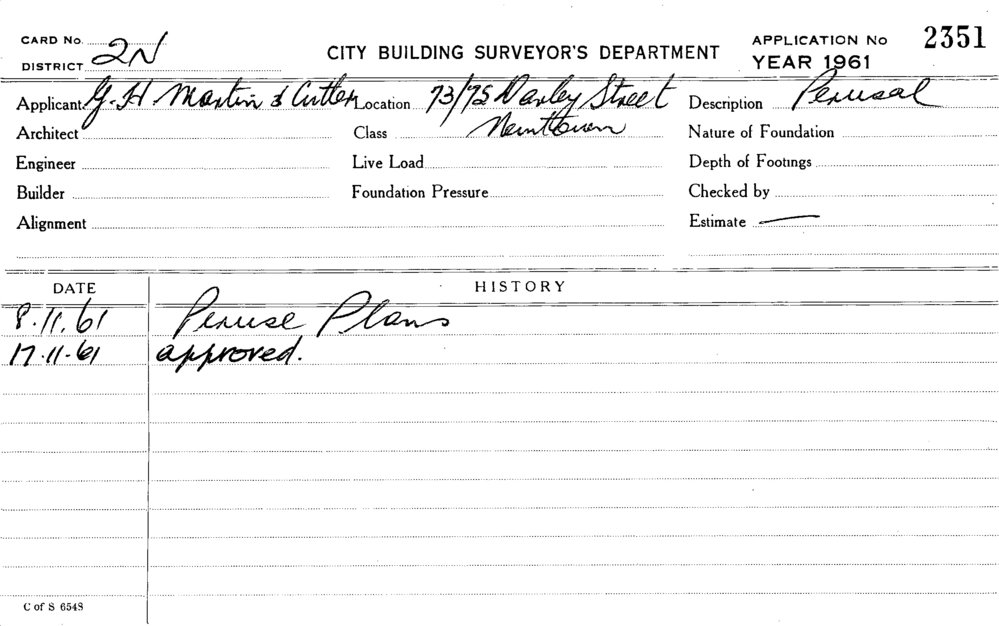 CARD No. 2N
DISTRICT
CITY BUILDING SURVEYOR'S DEPARTMENT
APPLICATION No 2351
YEAR 1961
Applicant G. H Martin & Cutler Location 73/75 Darley Street Description Perusal
Architect Class Newtown Nature of Foundation
Engineer Live Load Depth of Footings
Builder Foundation Pressure Checked by
Alignment Estimate —
DATE HISTORY
8.11.61 Peruse Plans
17.11.61 approved.
C of S 6548